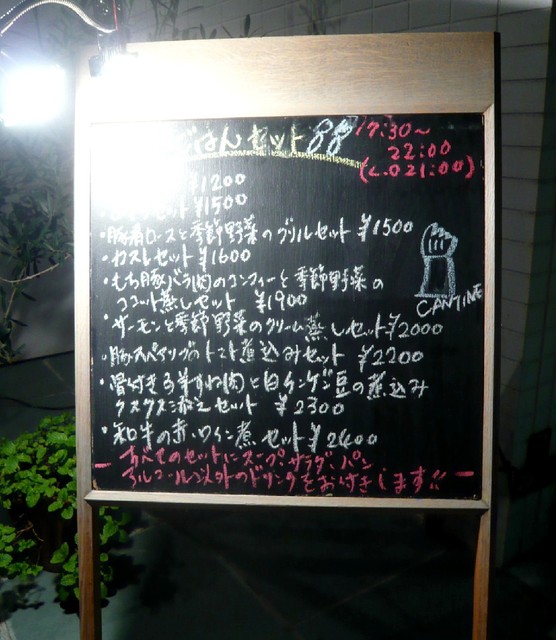 ごはんセット 88
17:30〜
22:00
(L.O21:00)
¥1200
セット ¥1500
・豚肩ロースと季節野菜のグリルセット ¥1500
・カスレセット ¥1600
・もち豚バラ(肉)のコンフィーと季節野菜の
ココット蒸しセット ¥1900
・サーモンと季節野菜のクリーム蒸しセット ¥2000
・豚スペアリブのトマト煮込みセット ¥2200
・骨付き子羊すね(肉)と白インゲン豆の煮込み
クスクス添えセット ¥2300
・和牛の赤ワイン煮セット ¥2400
CANTINE
すべてのセットにスープ、サラダ、パン
アルコール以外のドリンクをお付きします!!